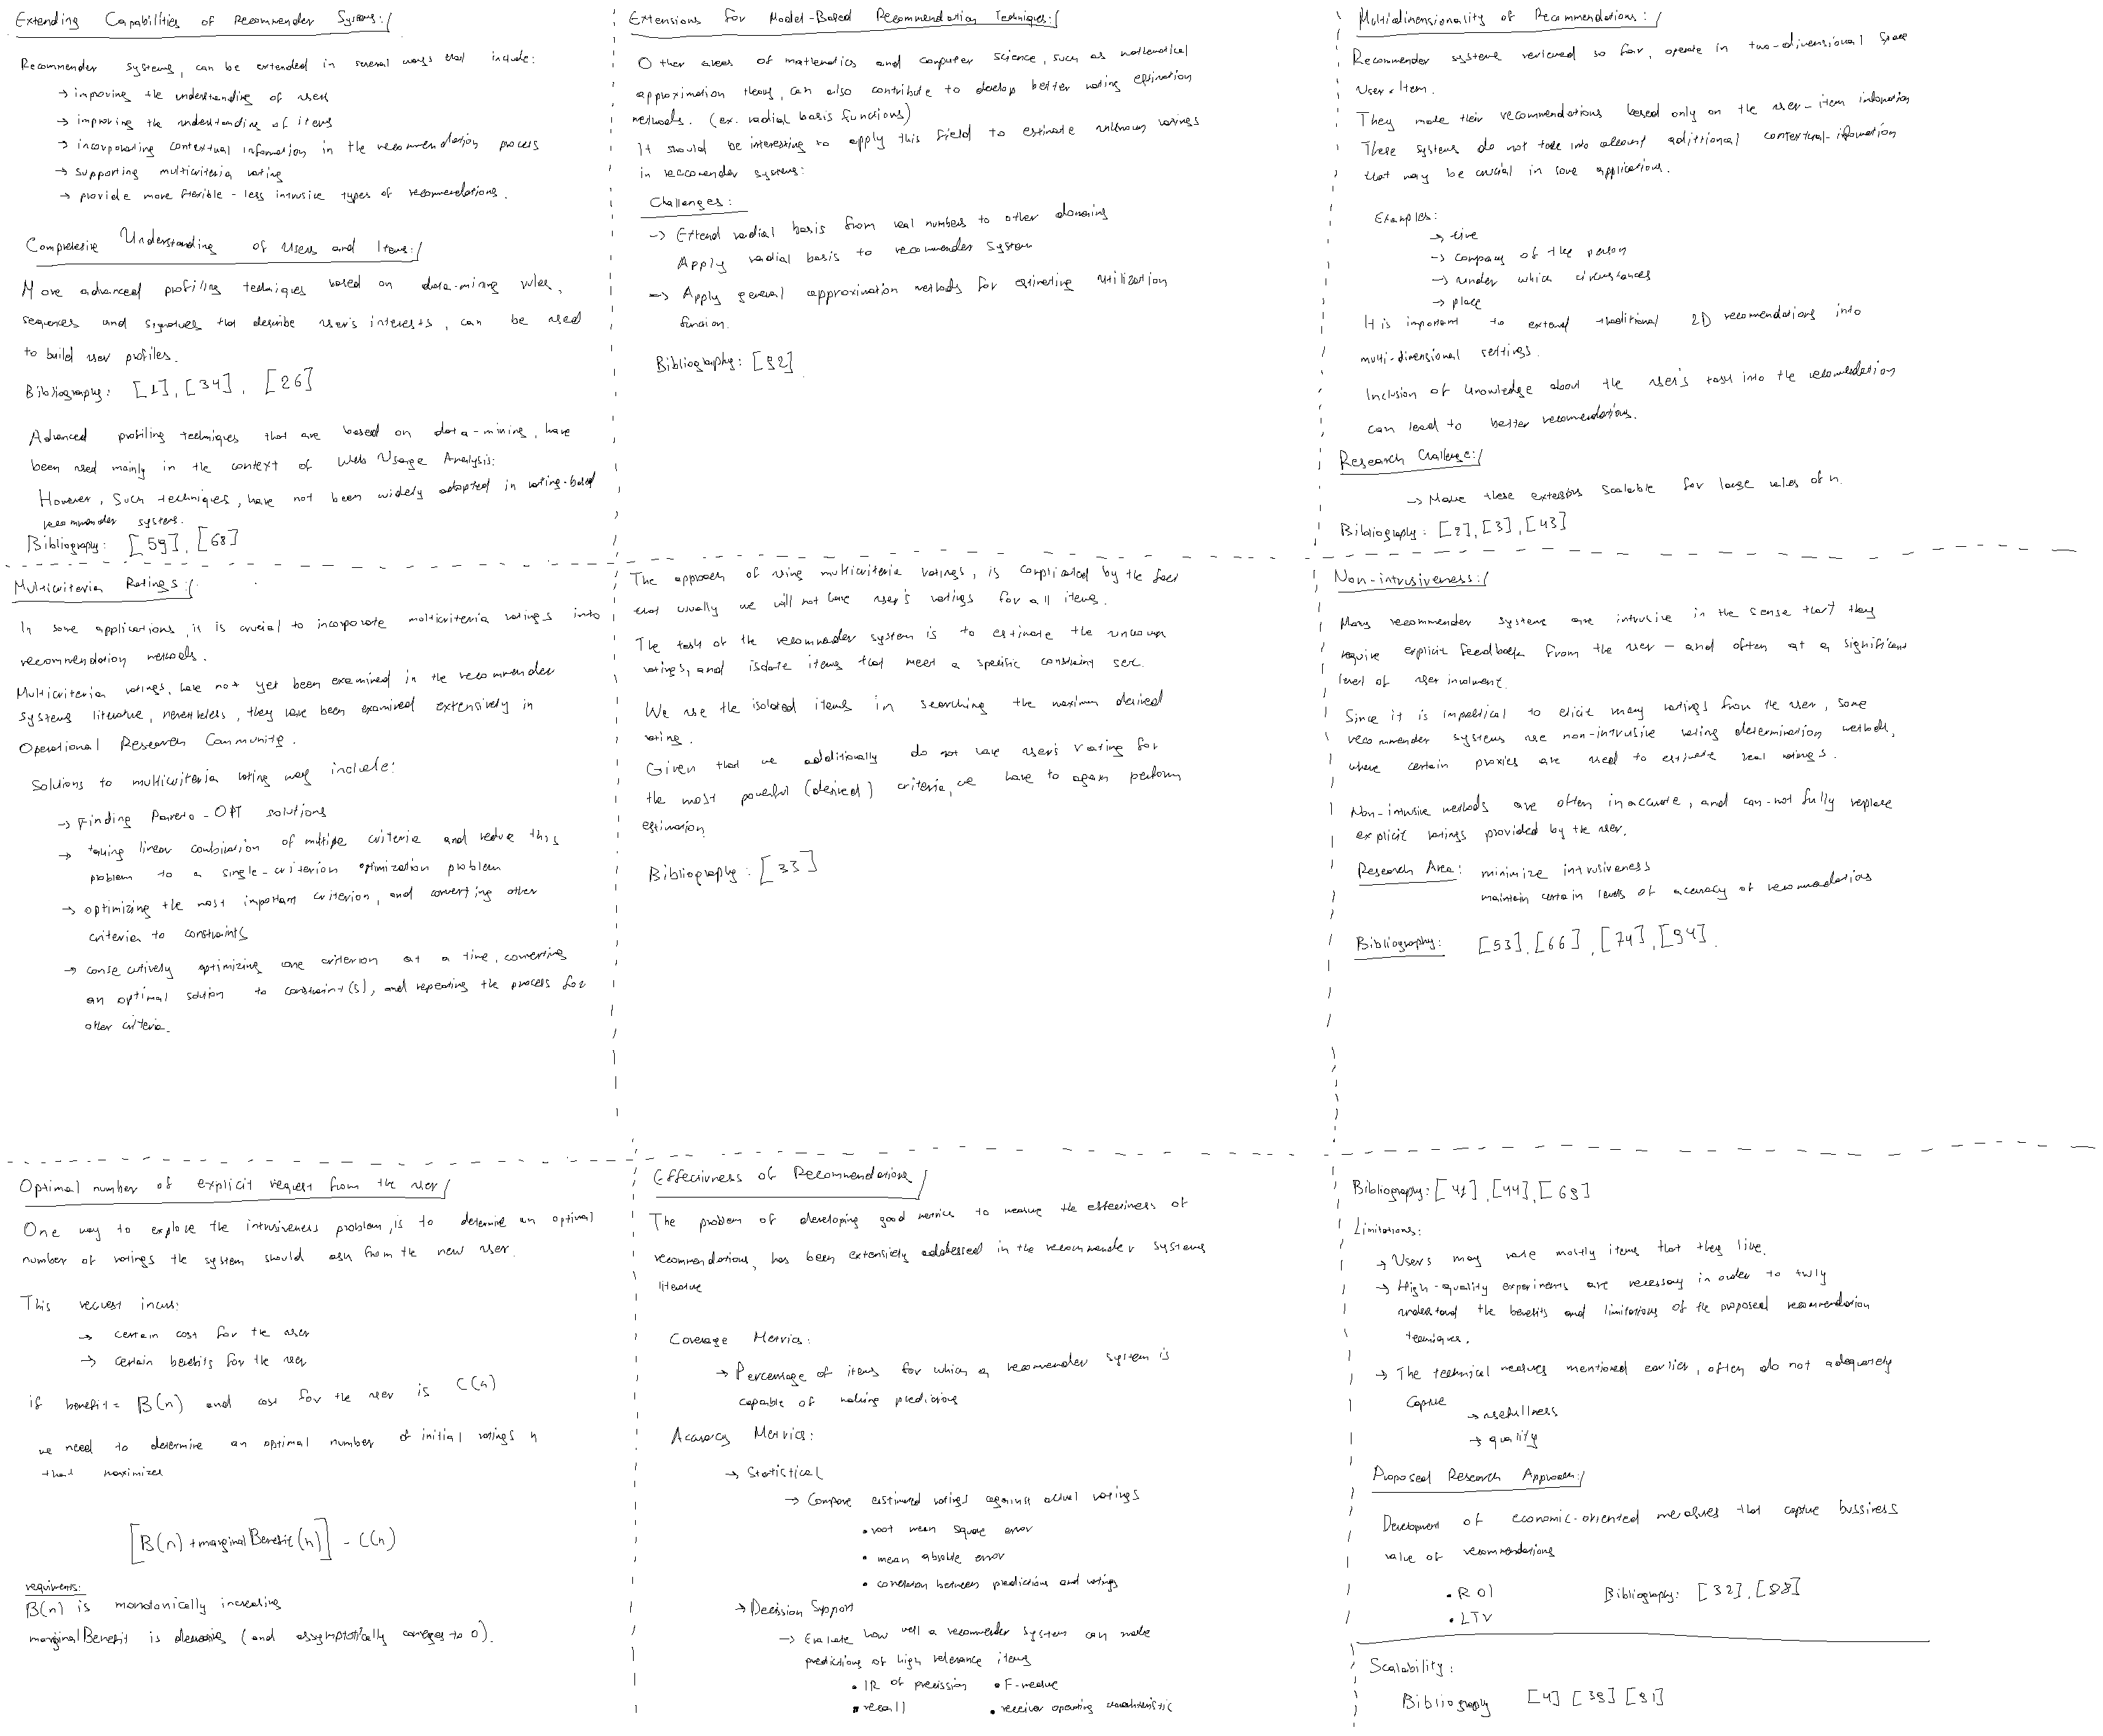 Extending Capabilities of Recommender Systems:/
Recommender systems, can be extended in several ways that include:
→ improving the understanding of users
→ improving the understanding of items
→ incorporating contextual information in the recommendation process
→ supporting multicriteria rating
→ provide more flexible - less intrusive types of recommendations.
Comprehensive Understanding of Users and Items:/
More advanced profiling techniques based on data-mining rules,
sequences and signatures that describe user's interests, can be used
to build user profiles.
Bibliography: [1], [34], [26]
Advanced profiling techniques that are based on data-mining, have
been used mainly in the context of Web Usage Analysis.
However, such techniques, have not been widely adopted in rating-based
recommender systems.
Bibliography: [59], [68]
Extensions for Model-Based Recommendation Techniques:/
Other areas of mathematics and computer science, such as mathematical
approximation theory, can also contribute to develop better rating estimation
methods. (ex. radial basis functions)
It should be interesting to apply this field to estimate unknown ratings
in reccomender systems:
Challenges:
→ Extend radial basis from real numbers to other domains
Apply radial basis to recommender system
→ Apply general approximation methods for estimating utilization
function.
Bibliography: [92]
Multidimensionality of Recommendations:/
Recommender systems reviewed so far, operate in two-dimensional space
User × Item.
They made their recommendations based only on the user-item information
These systems do not take into account additional contextual-information
that may be crucial in some applications.
Examples:
→ time
→ company of the person
→ under which circumstances
→ place
It is important to extend traditional 2D recomendations into
multi-dimensional settings.
Inclusion of knowledge about the user's task into the recomendation
can lead to better recomendations.
Research Challenge:/
→ Make these extensions scalable for large values of n.
Bibliography: [2], [3], [43]
Multicriteria Ratings:/
In some applications, it is crucial to incorporate multicriteria ratings into
recommendation methods.
Multicriteria ratings, have not yet been examined in the recommender
systems literature, nevertheless, they have been examined extensively in
Operational Research Community.
Solutions to multicriteria rating may include:
→ Finding Pareto-OPT solutions
→ taking linear combination of multiple criteria and reduce this
problem to a single-criterion optimization problem
→ optimizing the most important criterion, and converting other
criteria to constraints
→ consecutively optimizing one criterion at a time, converting
an optimal solution to constraint(s), and repeating the process for
other criteria.
The approach of using multicriteria ratings, is complicated by the fact
that usually we will not have user's ratings for all items.
The task of the recommender system is to estimate the unknown
ratings, and isolate items that meet a specific constraint set.
We use the isolated items in searching the maximum desired
rating.
Given that we additionally do not have user's rating for
the most powerful (desired) criteria, we have to again perform
estimation.
Bibliography: [33]
Non-intrusiveness:/
Many recommender systems are intrusive in the sense that they
require explicit feedback from the user - and often at a significant
level of user involment.
Since it is impactical to elicit many ratings from the user, some
recommender systems use non-intrusive rating determination methods,
where certain proxies are used to estimate real ratings.
Non-intrusive methods are often inaccurate, and can-not fully replace
explicit ratings provided by the user.
Research Area: minimize intrusiveness
maintain certain levels of accuracy of recommendations
Bibliography: [53], [66], [74], [94].
Optimal number of explicit request from the user/
One way to explore the intrusiveness problem, is to determine an optimal
number of ratings the system should ask from the new user.
This request incurs:
→ certain cost for the user
→ certain benefits for the user
if benefit = B(n) and cost for the user is C(n)
we need to determine an optimal number of initial ratings n
that maximizes
[B(n) + marginalBenefit(n)] - C(n)
requirements:
B(n) is monotonically increasing
marginalBenefit is decreasing (and assymptotically converges to 0).
Effectivness of Recommendations/
The problem of developing good metrics to measure the effectiveness of
recommendations, has been extensively addressed in the recommender systems
literature
Coverage Metrics:
→ Percentage of items for which a recommender system is
capable of making predictions
Accuracy Metrics:
→ Statistical
→ Compare estimated ratings against actual ratings
• root mean square error
• mean absolute error
• correlation between predictions and ratings
→ Decission Support
→ Evaluate how well a recommender system can make
predictions of high relevance items
• IR of precission • F-measure
• recall • receiver operating characteristic
Bibliography: [41], [44], [69]
Limitations:
→ Users may rate mostly items that they like.
→ High-quality experiments are necessary in order to truly
understand the benefits and limitations of the proposed recommendation
techniques.
→ The technical measures mentioned earlier, often do not adequately
capture
→ usefullness
→ quality
Proposed Research Approach:/
Development of economic-oriented measures that capture bussiness
value of recommendations
• ROI Bibliography: [32], [88]
• LTV
Scalability:
Bibliography [4] [39] [91]